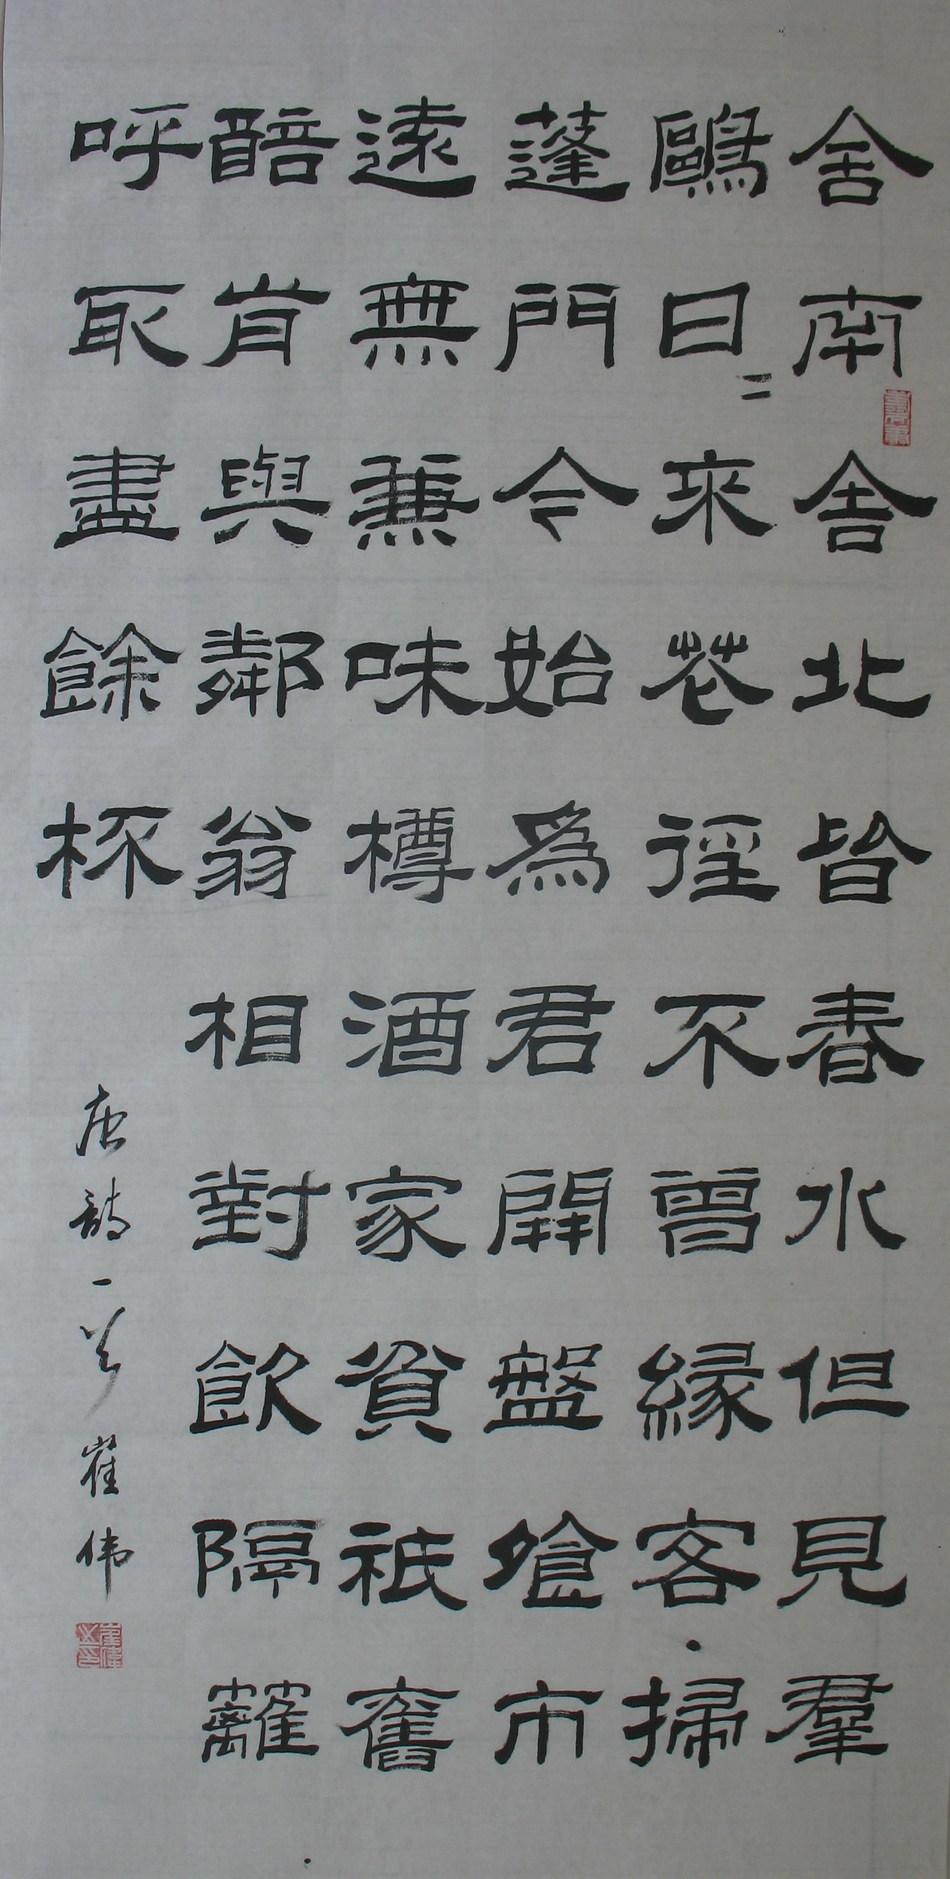 舍南舍北皆春水但見羣
鷗日〻來花徑不曾緣客掃
蓬門今始爲君開盤飧市
遠無兼味樽酒家貧祇舊
醅肯與鄰翁相對飲隔籬
呼取盡餘杯
唐詩一首 崔伟